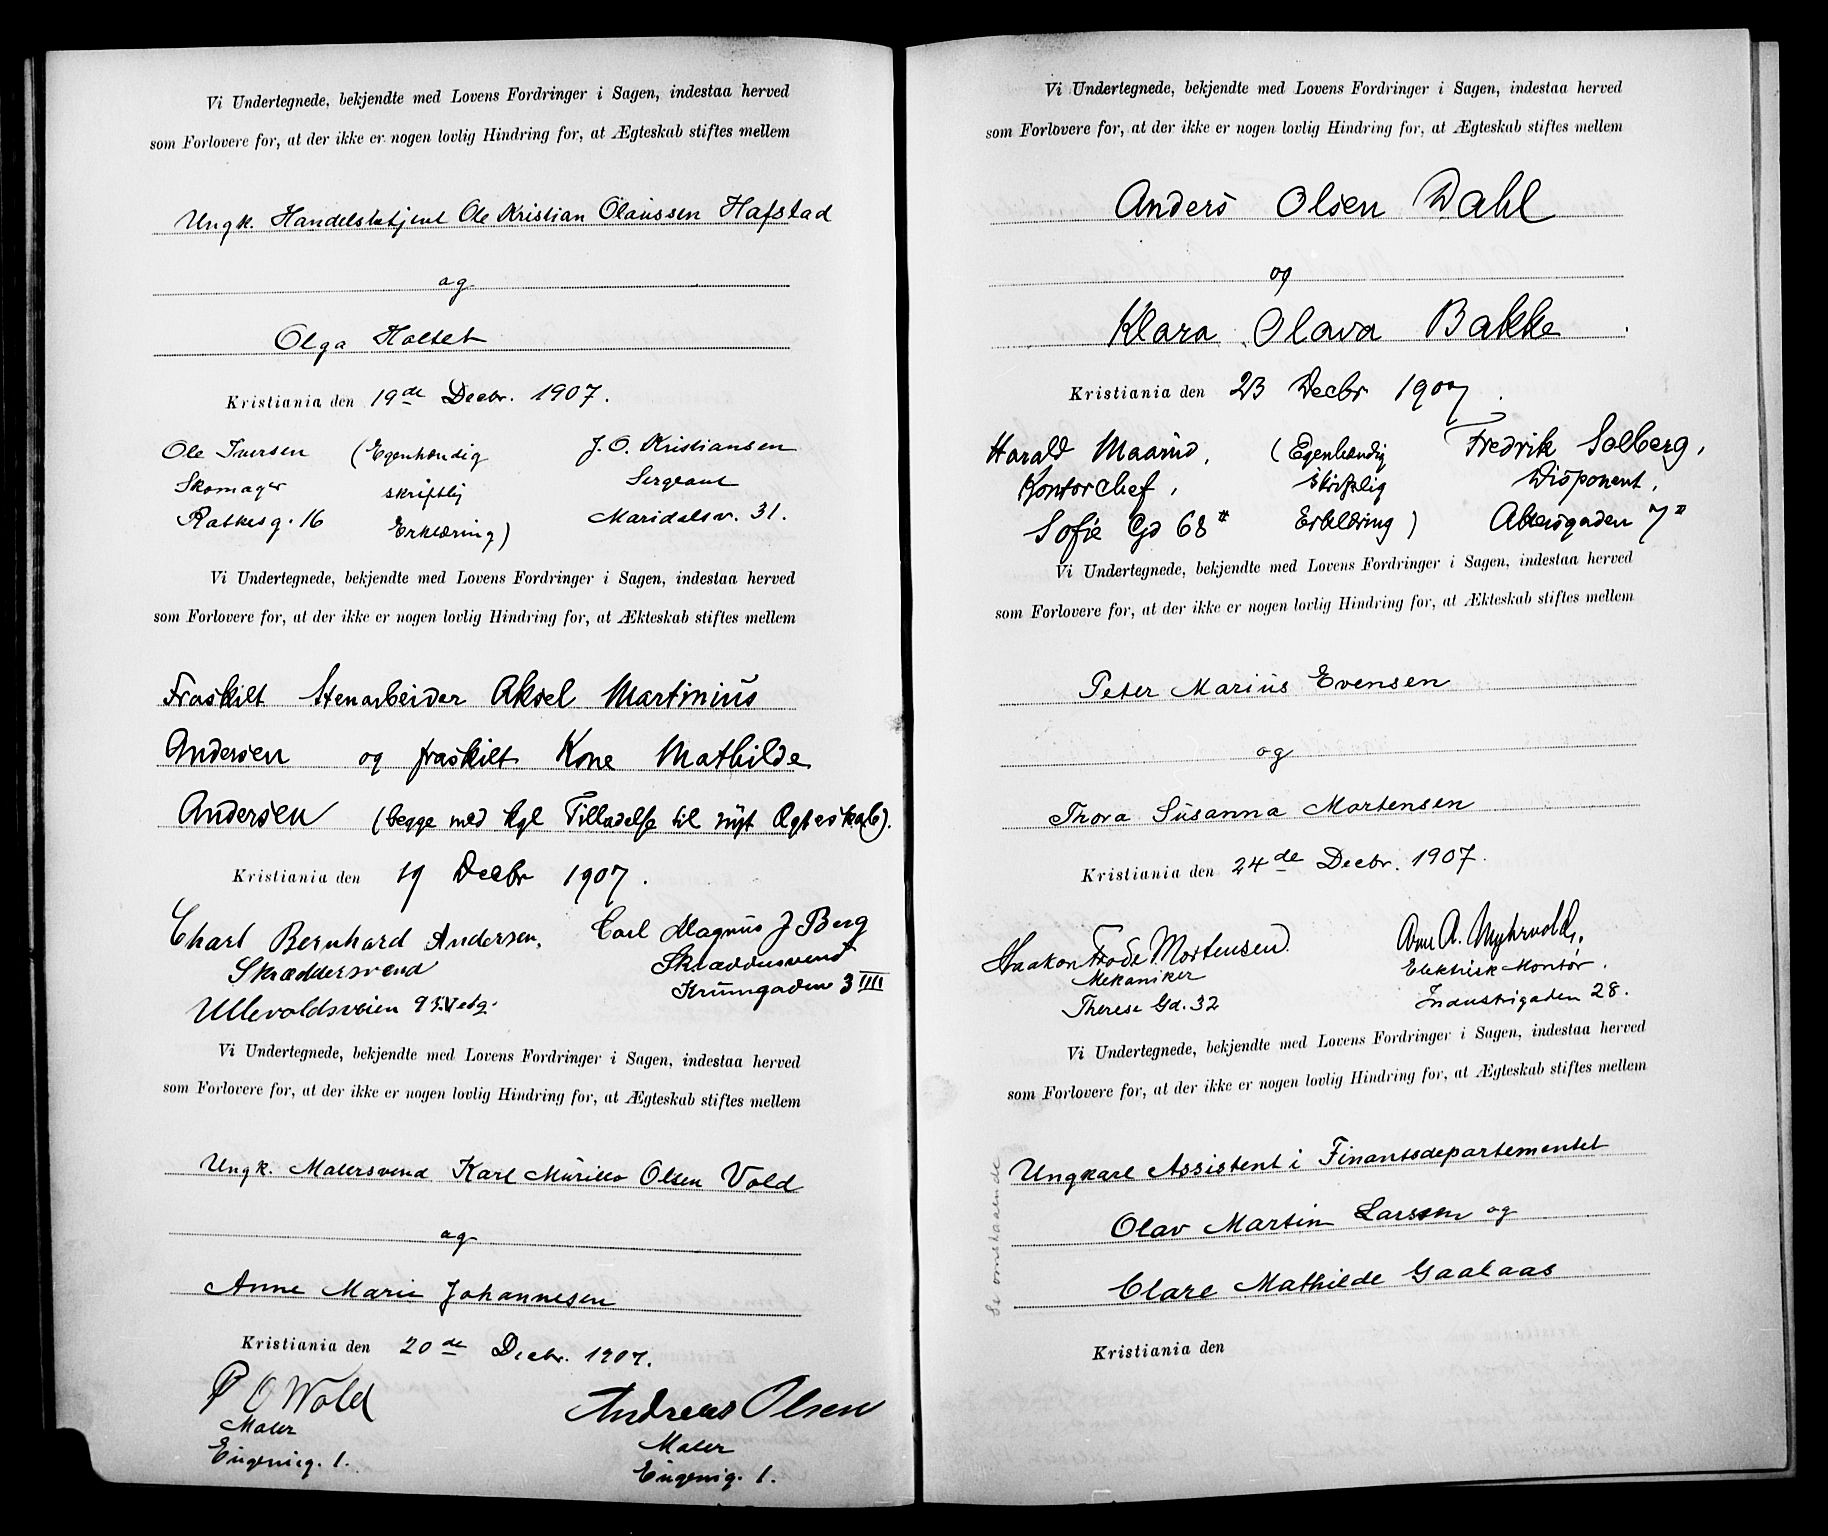 Vi Undertegnede, bekjendte med Lovens Fordringer i Sagen, indestaa herved
som Forlovere for, at der ikke er nogen lovlig Hindring for, at Ægteskab stiftes mellem
Ungk. Handelsbetjent Ole Kristian Olaussen Hafstad
og
Olga Holtet
Kristiania den 19de Decbr. 1907.
Ole Iversen (Egenhændig J. O. Kristiansen
Skomager skriftlig Sergeant
Rathkesg. 16 Erklæring) Maridalsv. 31.
Vi Undertegnede, bekjendte med Lovens Fordringer i Sagen, indestaa herved
som Forlovere for, at der ikke er nogen lovlig Hindring for, at Ækteskab stiftes mellem
Fraskilt Stenarbeider Aksel Martinius
Andersen og fraskilt Kone Mathilde
Andersen (begge med kgl Tilladelse til nyt Ægteskab).
Kristiania den 19 Decbr 1907.
Charl Bernhard Andersen, Carl Magnus J Berg
Skræddersvend Skræddersvend
Ullevoldsveien Krumgaden 3 IIII
Vi Undertegnede, bekjendte med Lovens Fordringer i Sagen, indestaa herved
som Forlovere for, at der ikke er nogen lovlig Hindring for, at Ægteskab stiftes mellem
Ungk. Malersvend Karl Murillo Olsen Vold
og
Anne Marie Johannesen
Kristiania den 20de Decbr. 1907.
P O Wold Andreas Olsen
Maler Maler
Eugenieg. 1. Eugenig. 1.
Vi Undertegnede, bekjendte med Lovens Fordringer i Sagen, indestaa herved
som Forlovere for, at der ikke er nogen lovlig Hindring for, at Ægteskab stiftes mellem
Anders Olsen Dahl
og
Klara Olava Bakke.
Kristiania den 23 Decbr 1907.
Harald Maarud, (Egenhændig Fredrik Solberg,
Kontorchef, skriftlig Disponent,
Sofie Gd 68 II Erklæring) Akersgaden 7 II
Vi Undertegnede, bekjendte med Lovens Fordringer i Sagen, indestaa herved
som Forlovere for, at der ikke er nogen lovlig Hindring for, at Ækteskab stiftes mellem
Peter Marius Evensen
og
Thora Susanna Mortensen
Kristiania den 24de Decbr. 1907.
Haakon Frode Mortensen. A. Myhrvold,
Mekaniker Elektrisk Montør.
Therese Gd. 32 Industrigaden 28.
Vi Undertegnede, bekjendte med Lovens Fordringer i Sagen, indestaa herved
som Forlovere for, at der ikke er nogen lovlig Hindring for, at Ægteskab stiftes mellem
Ungkarl Assistent i Finantsdepartementet
Olav Martin Larssen og
Clare Mathilde Gaalaas
Kristiania den
Se omstaaende